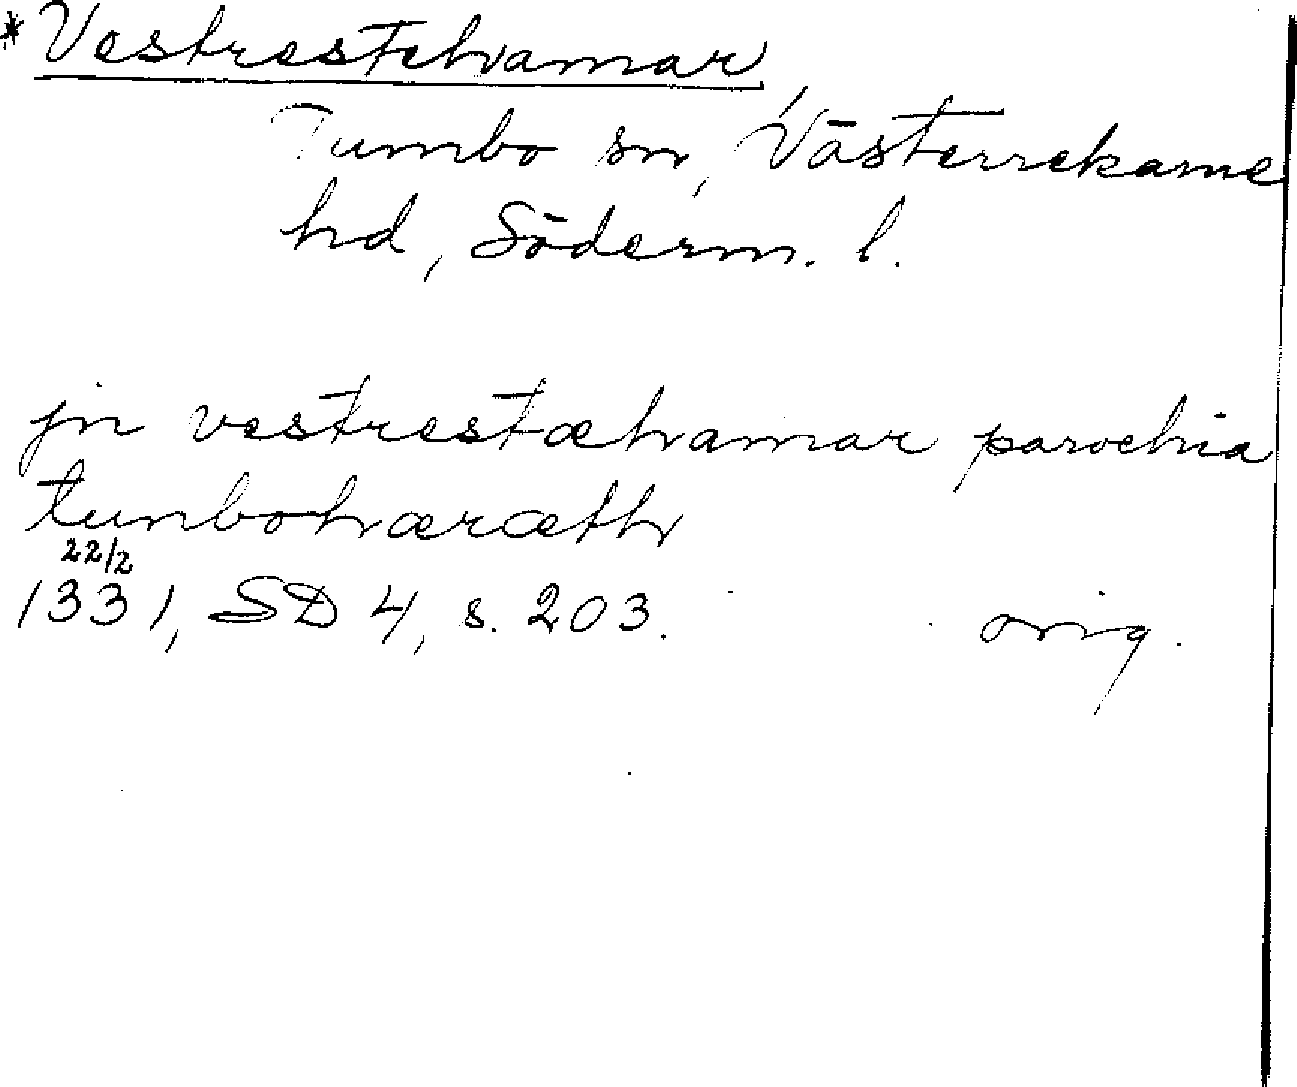 *Vestrestehamar
Tumbo sn, Västerrekarne
hd, Söderm. l.
jn vestrestæhamar parochia
tunbohæræth
22/2
1331, SD 4, s. 203. orig.